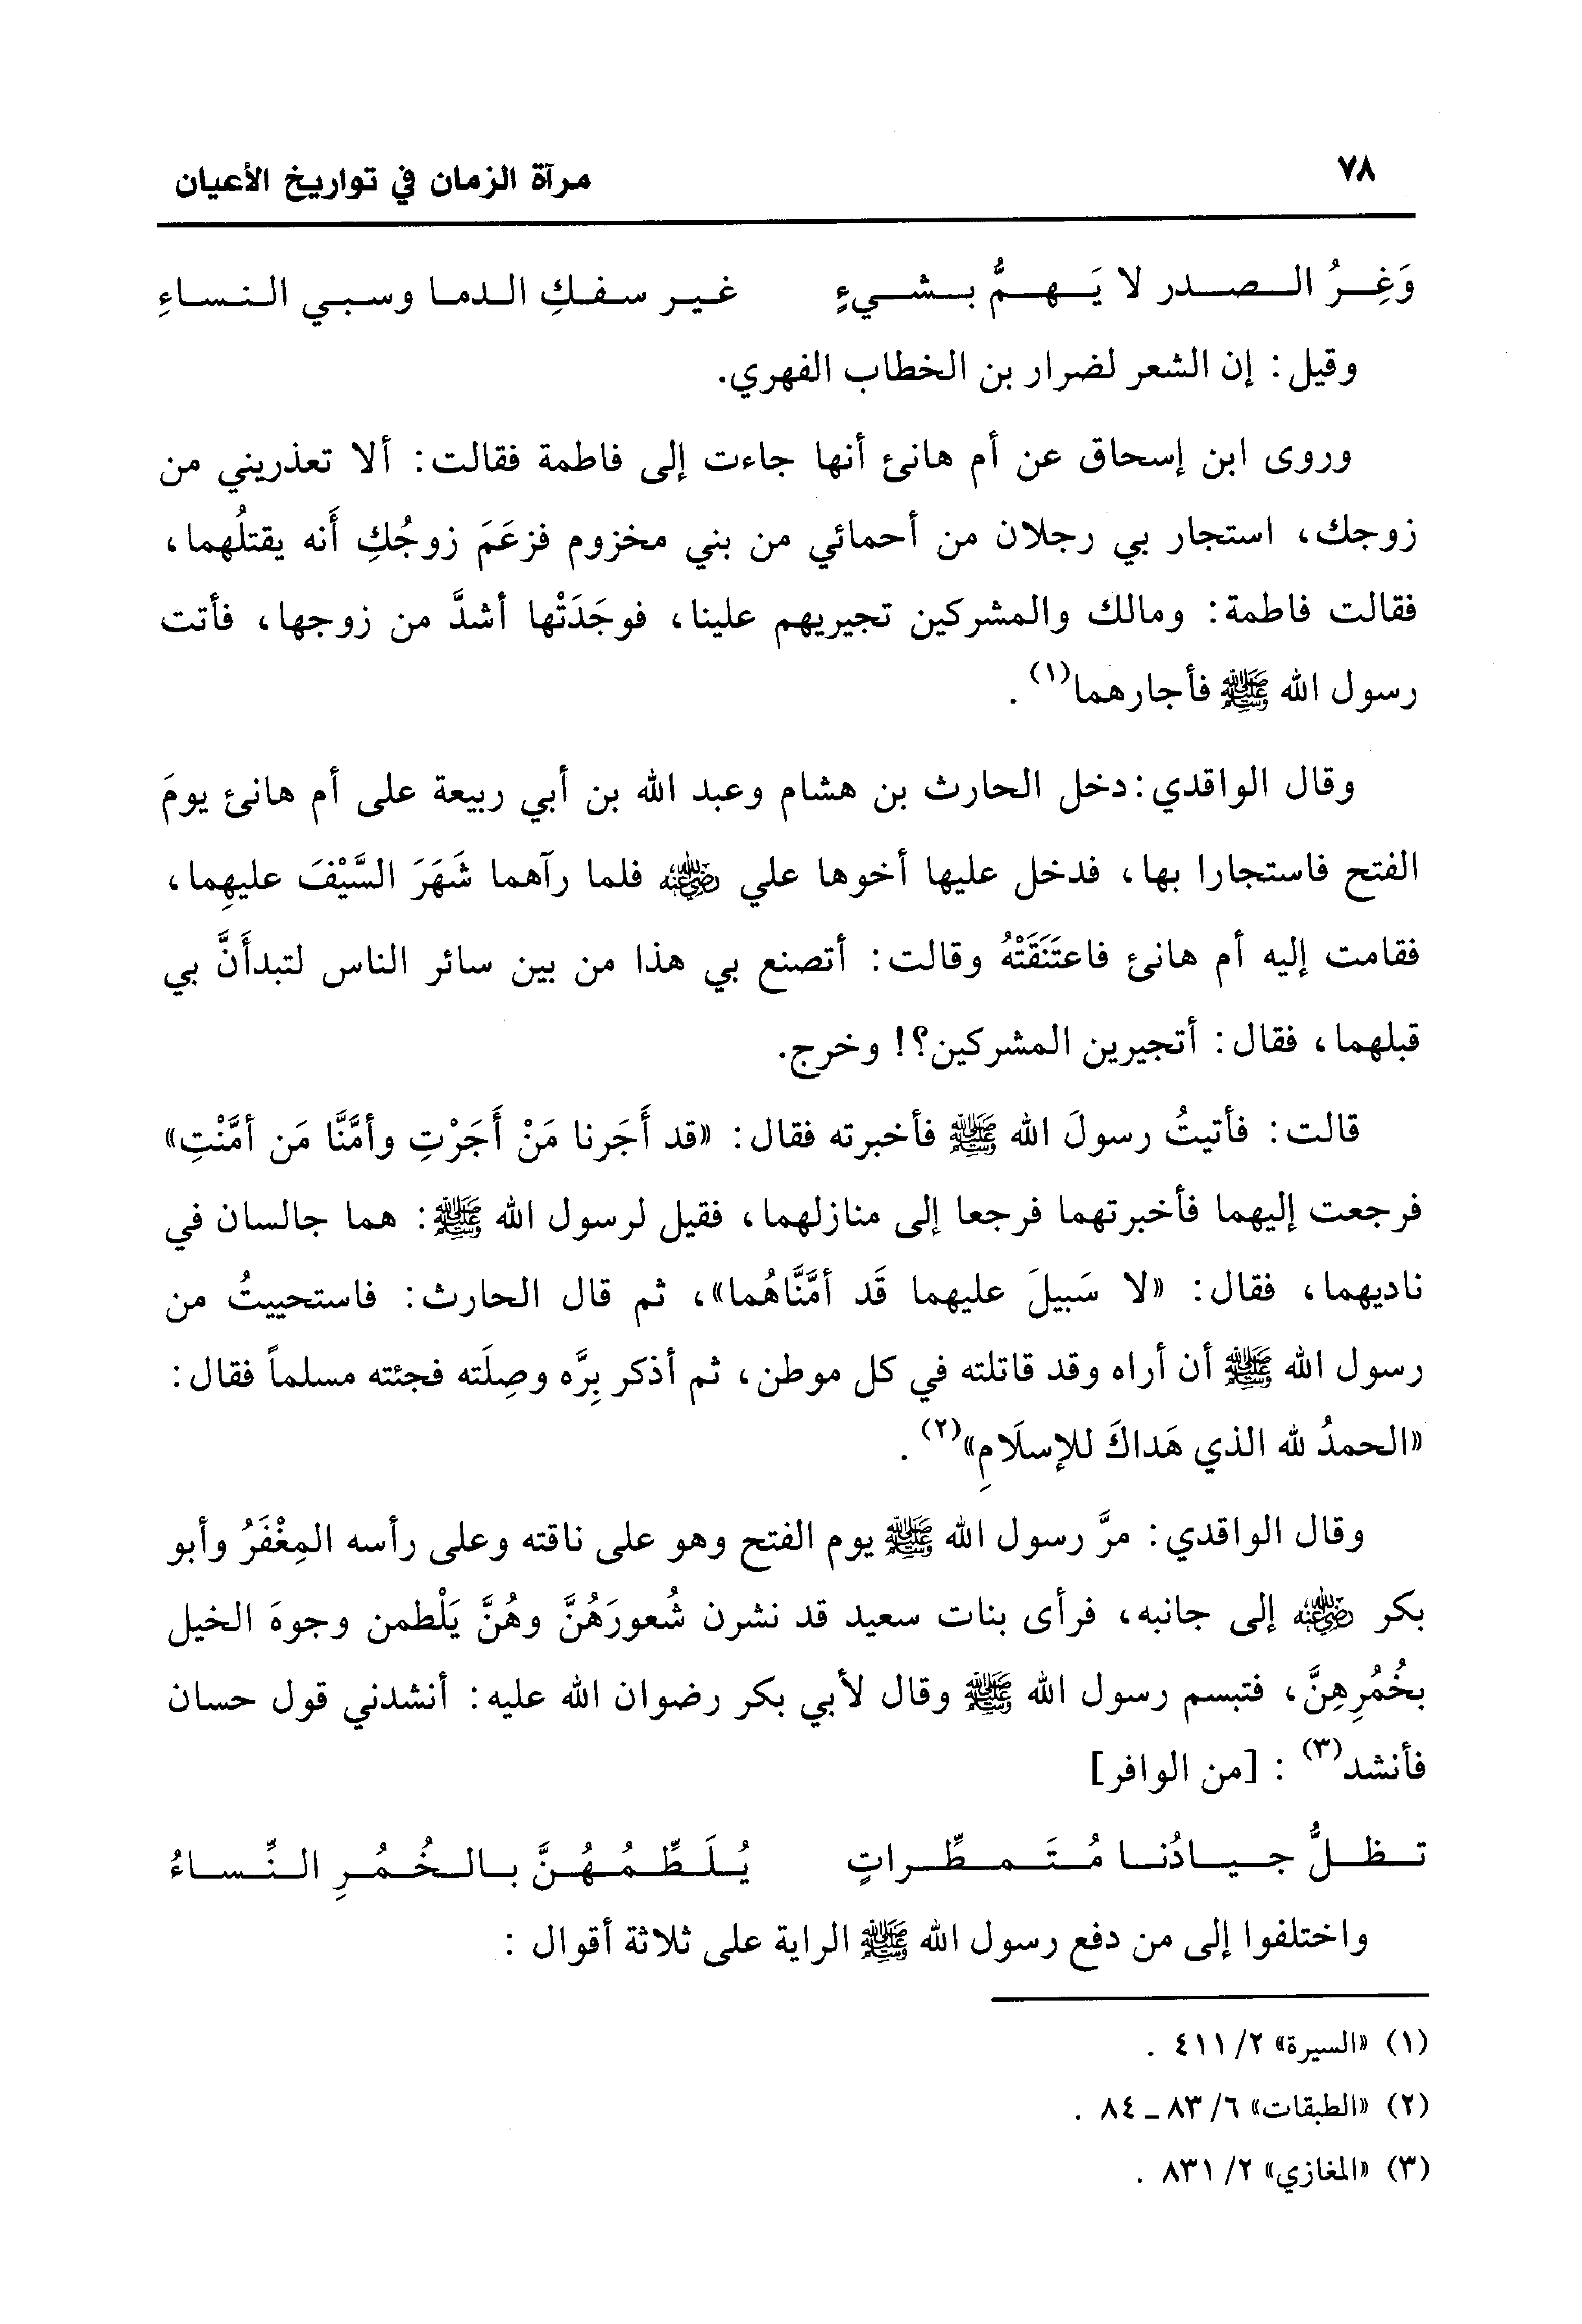 ٧٨
مرآة الزمان في تواريخ الأعيان
وَغِـرُ الـصـدر لا يَـهـمُّ بـشـيءٍ غـيـر سـفـكِ الـدمـا وسـبـي الـنـسـاءِ
وقيل: إن الشعر لضرار بن الخطاب الفهري.
وروى ابن إسحاق عن أم هانئ أنها جاءت إلى فاطمة فقالت: ألا تعذريني من
زوجك، استجار بي رجلان من أحمائي من بني مخزوم فزعَمَ زوجُكِ أَنه يقتلُهما،
فقالت فاطمة: ومالك والمشركين تجيريهم علينا، فوجَدَتْها أشدَّ من زوجها، فأتت
رسول الله ﷺ فأجارهما(١) .
وقال الواقدي:دخل الحارث بن هشام وعبد الله بن أبي ربيعة على أم هانئ يومَ
الفتح فاستجارا بها، فدخل عليها أخوها علي رضي الله عنه فلما رآهما شَهَرَ السَّيْفَ عليهِما،
فقامت إليه أم هانئ فاعتَنَقَتْهُ وقالت: أتصنع بي هذا من بين سائر الناس لتبدأَنَّ بي
قبلهما، فقال: أتجيرين المشركين؟! وخرج.
قالت: فأتيتُ رسولَ الله ﷺ فأخبرته فقال: «قد أَجَرنا مَنْ أَجَرْتِ وأمَّنَّا مَن أمَّنْتِ»
فرجعت إليهما فأخبرتهما فرجعا إلى منازلهما، فقيل لرسول الله ﷺ: هما جالسان في
ناديهما، فقال: «لا سَبيلَ عليهما قَد أمَّنَّاهُما»، ثم قال الحارث: فاستحييتُ من
رسول الله ﷺ أن أراه وقد قاتلته في كل موطن، ثم أذكر بِرَّه وصِلَته فجئته مسلماً فقال:
«الحمدُ لله الذي هَداكَ للإسلَامِ»(٢) .
وقال الواقدي: مرَّ رسول الله ﷺ يوم الفتح وهو على ناقته وعلى رأسه المِغْفَرُ وأبو
بكر رضي الله عنه إلى جانبه، فرأى بنات سعيد قد نشرن شُعورَهُنَّ وهُنَّ يَلْطمن وجوهَ الخيل
بخُمُرِهِنَّ، فتبسم رسول الله ﷺ وقال لأبي بكر رضوان الله عليه: أنشدني قول حسان
فأنشد(٣) : [من الوافر]
تـظـلُّ جـيـادُنـا مُـتَـمـطِّـراتٍ يُـلَـطِّـمُـهُـنَّ بـالـخُـمُـرِ الـنِّـسـاءُ
واختلفوا إلى من دفع رسول الله ﷺ الراية على ثلاثة أقوال :
(١) «السيرة» ٢/ ٤١١ .
(٢) «الطبقات» ٦/ ٨٣ ـ ٨٤ .
(٣) «المغازي» ٢/ ٨٣١ .